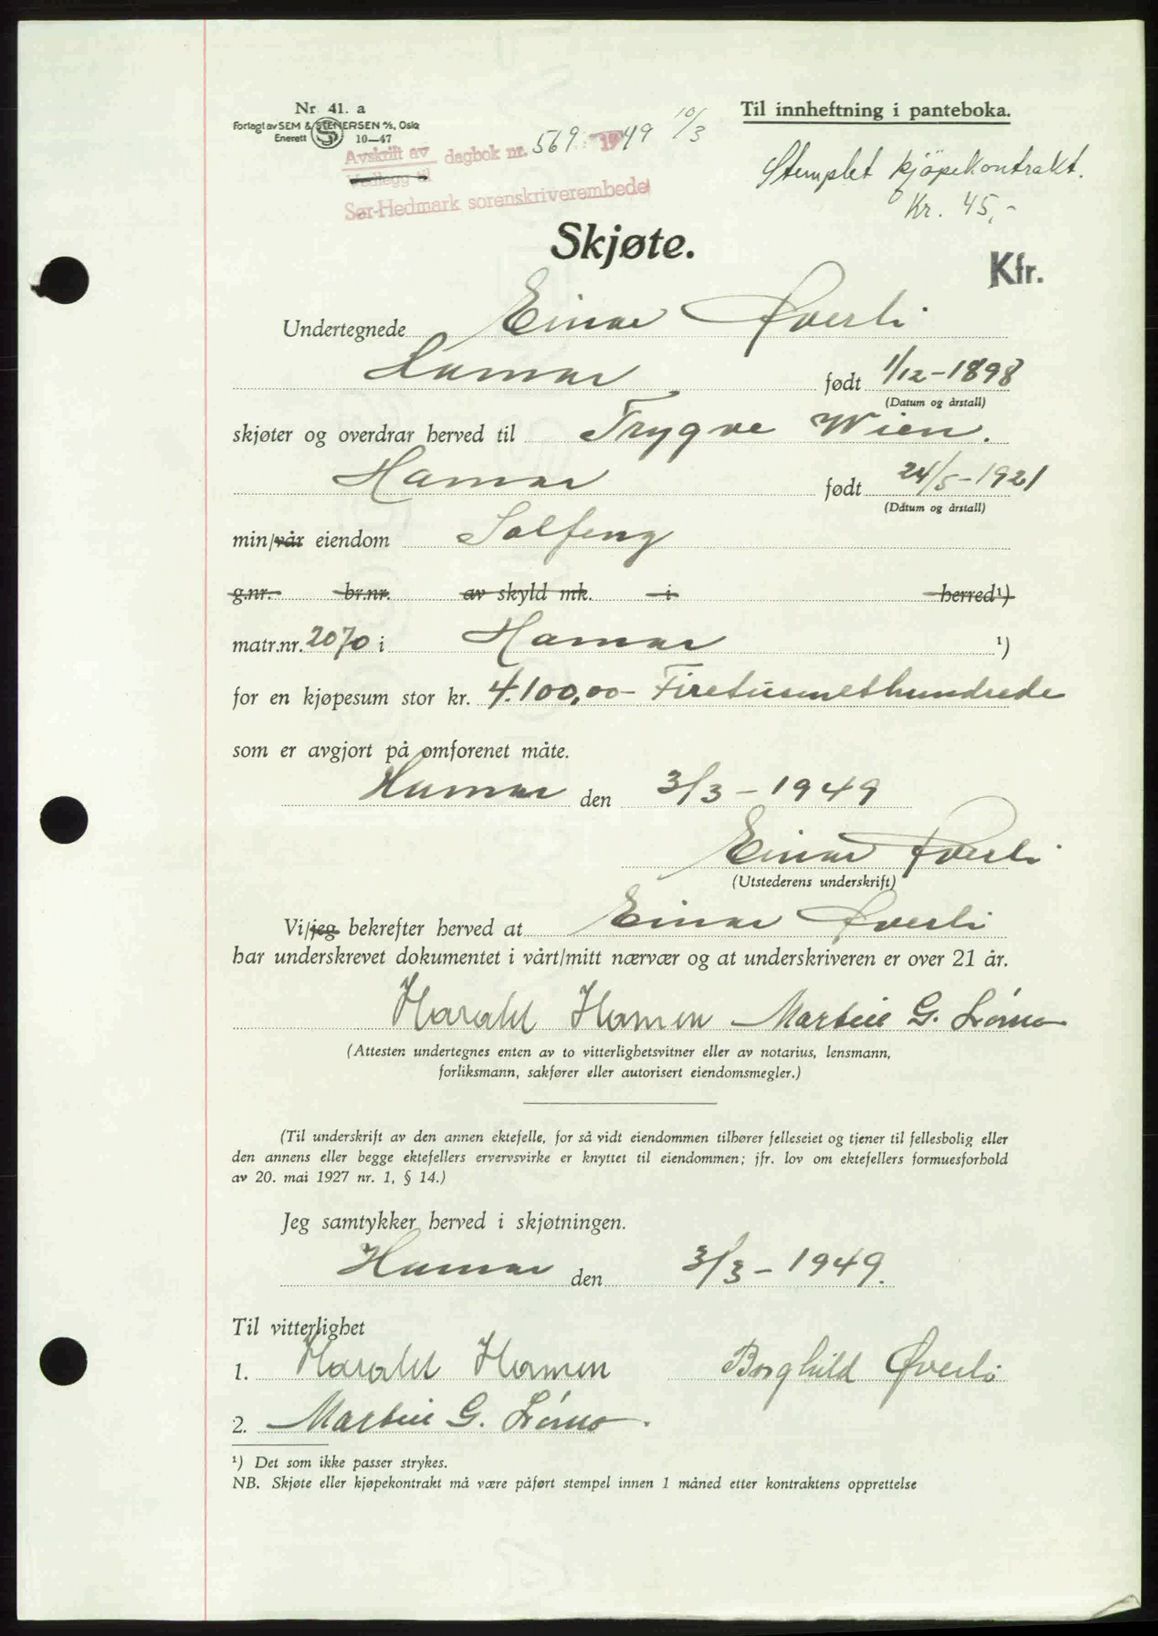 Nr 41. a
Forlagt av SEM & STENERSEN A/S, Oslo
Enerett 10—47
Til innheftning i panteboka.
Avskrift av dagbok nr. 569 1949 10/3
Vedlegg til
Sør-Hedmark sorenskriverembede
Stemplet kjøpekontrakt.
Kr. 45,-
Skjøte.
Kfr.
Undertegnede Einar Øverli
Hamar født 1/12-1898
(Datum og årstall)
skjøter og overdrar herved til Trygve Wien.
Hamar født 24/5-1921
(Datum og årstall)
min/vår eiendom Solfeng
g.nr. br.nr. av skyld mk. i herred¹)
matr.nr. 2070 i Hamar ¹)
for en kjøpesum stor kr. 4.100,00- Firetusenethundrede
som er avgjort på omforenet måte.
Hamar den 3/3-1949
Einar Øverli
(Utstederens underskrift)
Vi/jeg bekrefter herved at Einar Øverli
har underskrevet dokumentet i vårt/mitt nærvær og at underskriveren er over 21 år.
Harald Hamen Martin G.
(Attesten undertegnes enten av to vitterlighetsvitner eller av notarius, lensmann,
forliksmann, sakfører eller autorisert eiendomsmegler.)
(Til underskrift av den annen ektefelle, for så vidt eiendommen tilhører felleseiet og tjener til fellesbolig eller
den annens eller begge ektefellers ervervsvirke er knyttet til eiendommen; jfr. lov om ektefellers formuesforhold
av 20. mai 1927 nr. 1, § 14.)
Jeg samtykker herved i skjøtningen.
Hamar den 3/3-1949.
Til vitterlighet
1. Harald Hamen Borghild Øverli
2. Martin G.
¹) Det som ikke passer strykes.
NB. Skjøte eller kjøpekontrakt må være påført stempel innen 1 måned etter kontraktens opprettelse